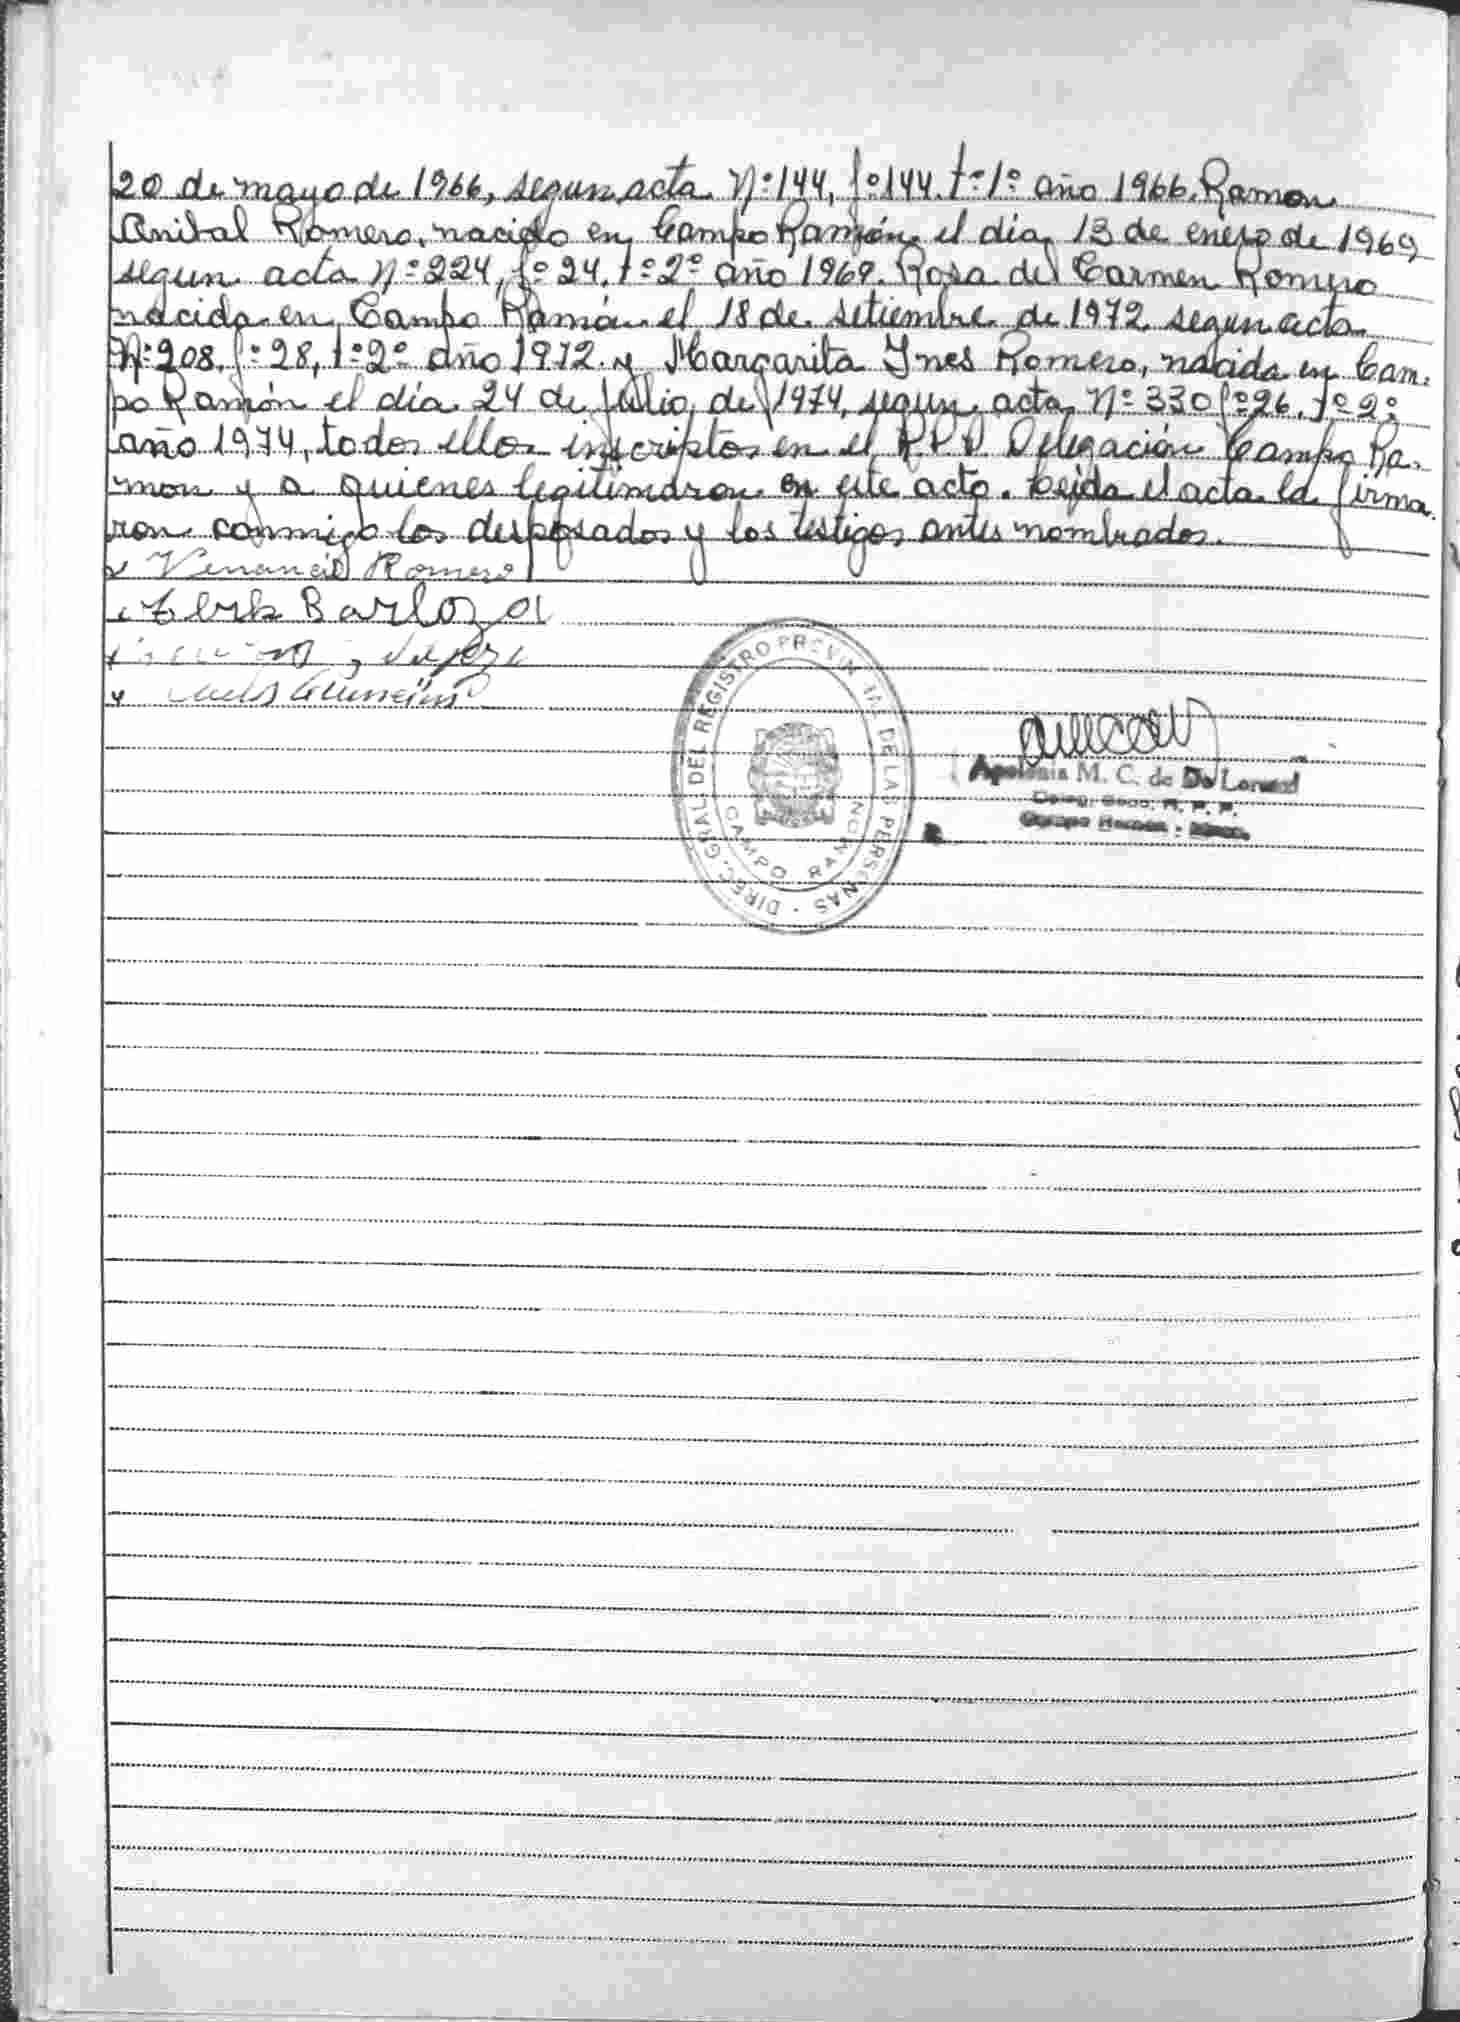 20 de mayo de 1966, segun acta Nº144, fº144. tº1º año 1966. Ramon
Anibal Romero, nacido en Campo Ramón el día 13 de enero de 1969
segun acta Nº224, fº24, tº2º año 1969. Rosa del Carmen Romero
nacida en Campo Ramón el 18 de setiembre de 1972 segun acta
Nº208, fº28, tº2º año 1972. y Margarita Ynes Romero, nacida en Cam-
po Ramón el día 24 de Julio de 1974, segun acta Nº330 fº26. tº2º
año 1974, todos ellos inscriptos en el R.P.P. Delegación Campo Ra-
mon y a quienes legitimaron en este acto. Leida el acta la firma-
ron conmigo los desposados y los testigos antes nombrados.
Venancio Romero
Barloza
DIREC. GRAL. DEL REGISTRO PROVINCIAL DE LAS PERSONAS
CAMPO RAMON
Apolonia M. C. de De Lorenzi
R. P. P.
Campo Ramon